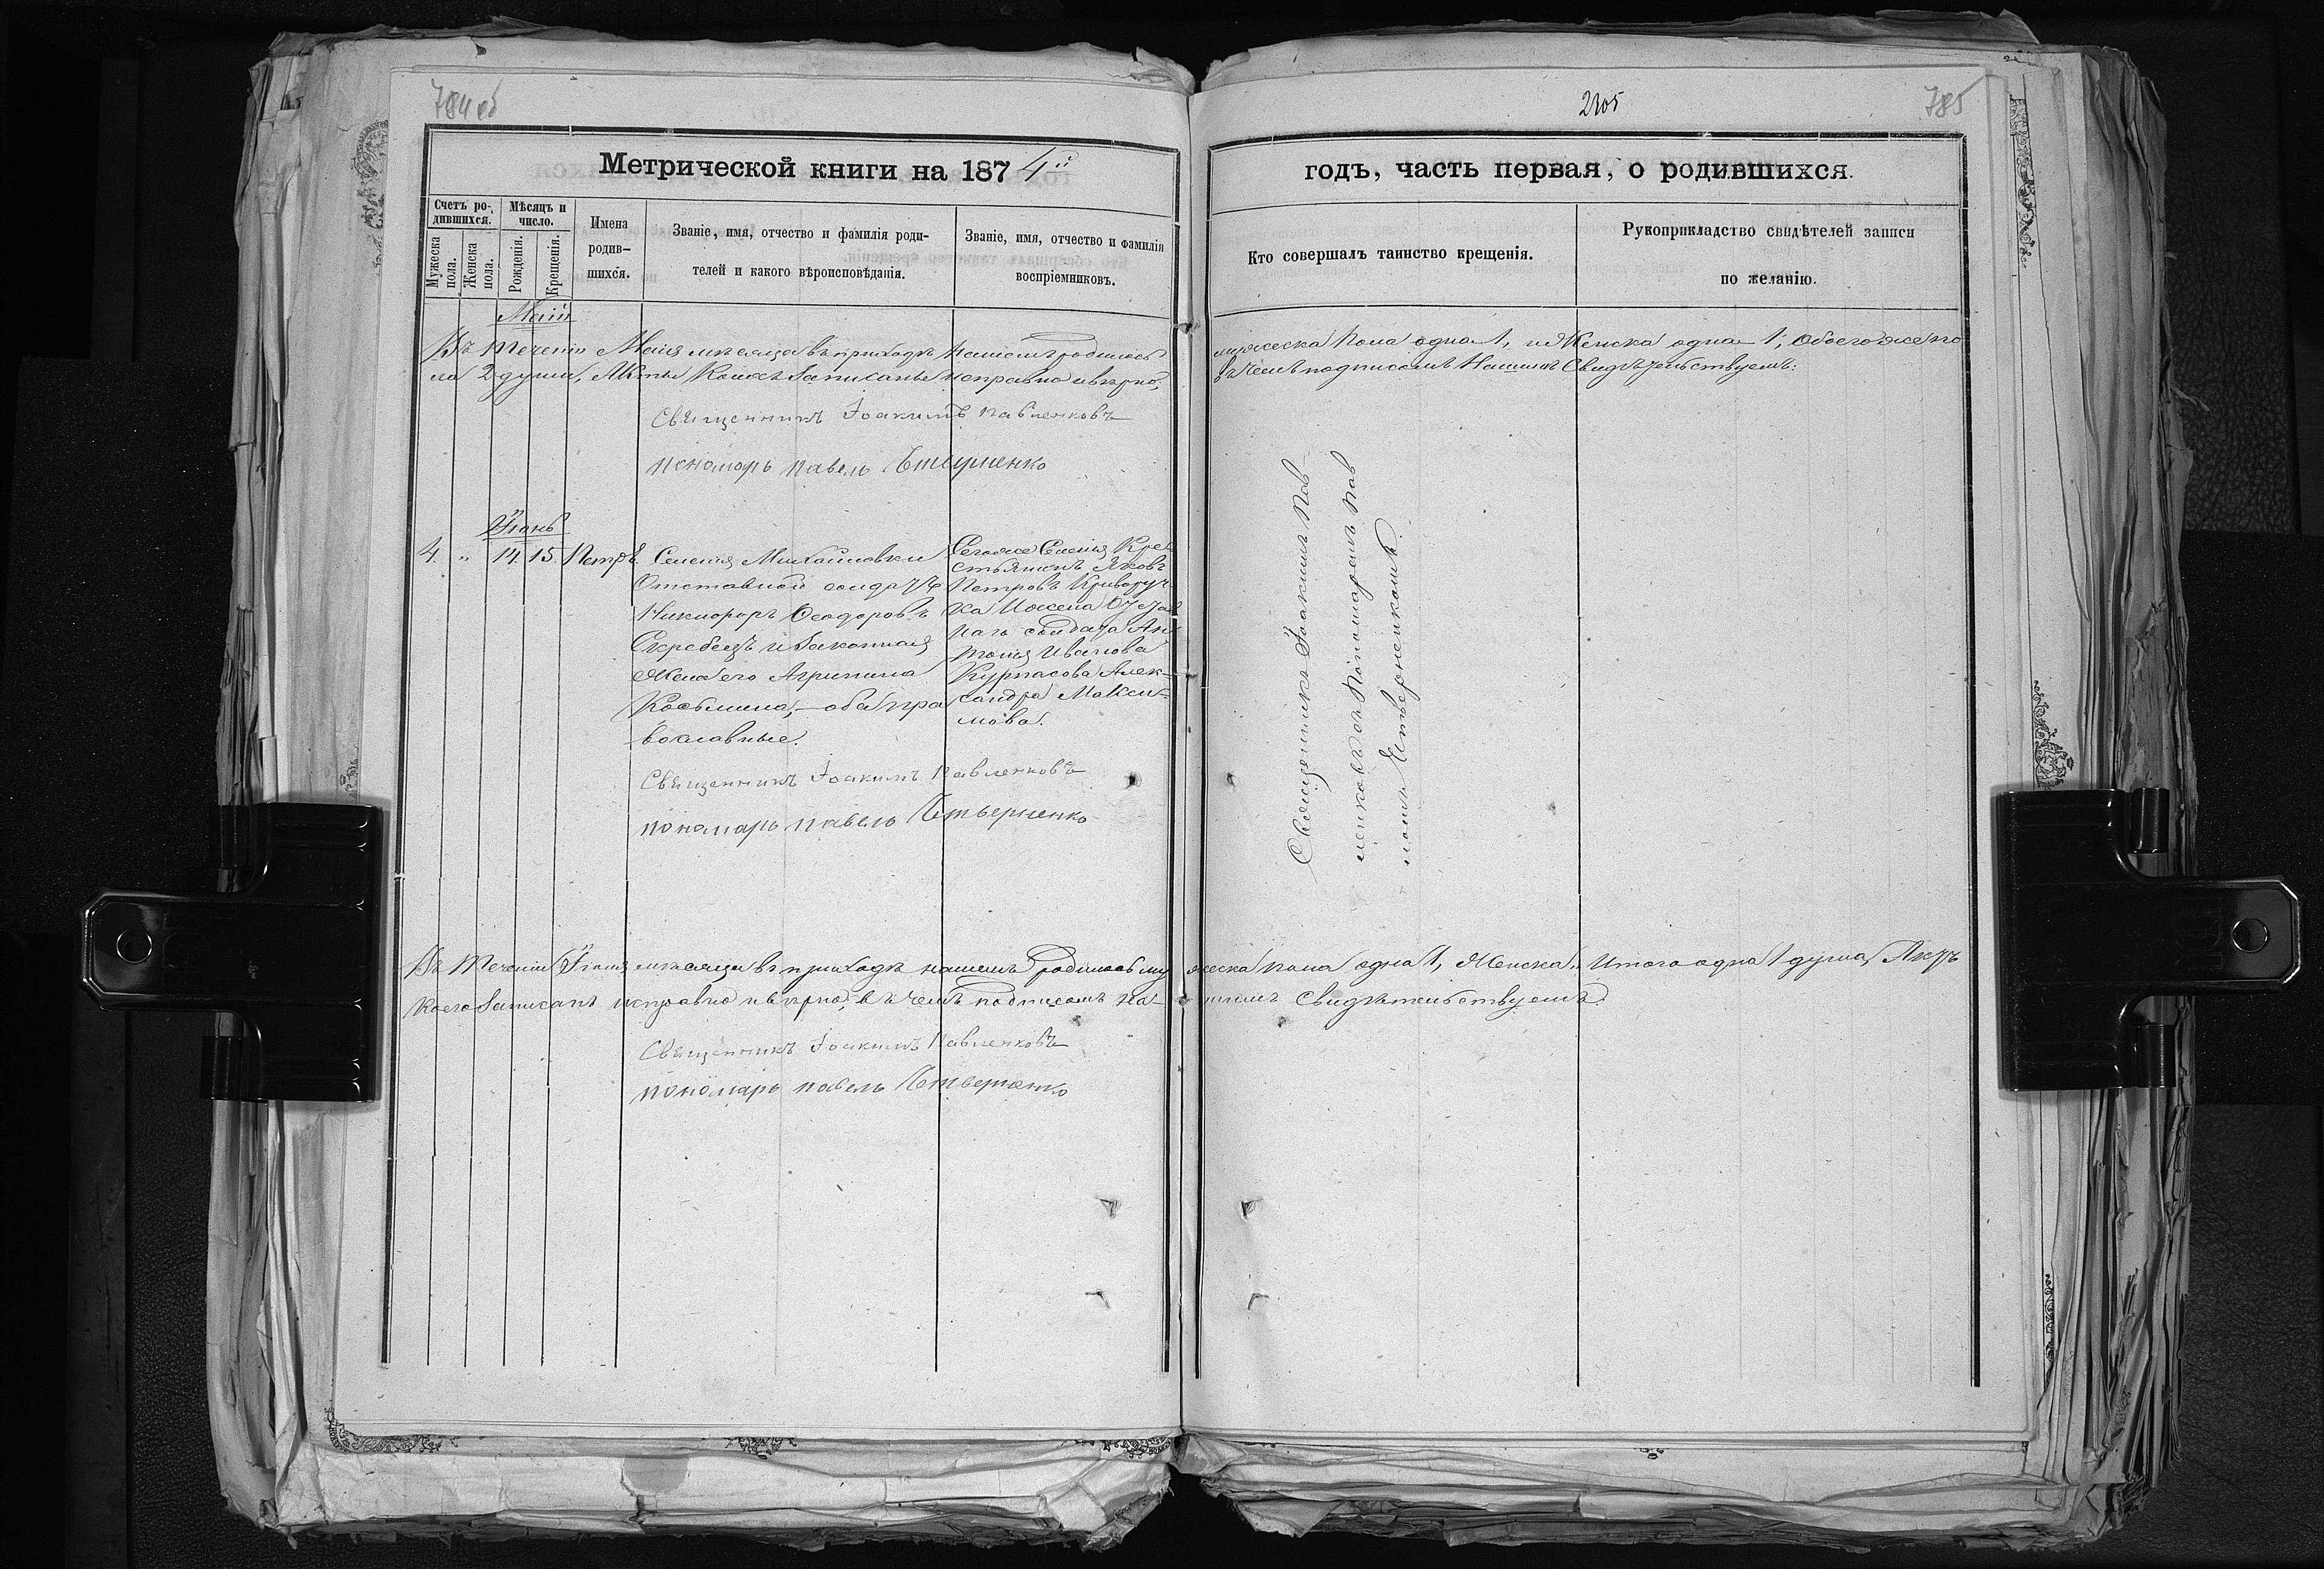 784 об
2305
785
Метрической книги на 1874й
годъ, часть первая, о родившихся.
Счетъ ро-
дившихся.
Мужеска
пола.
Женска
пола.
Мѣсяцъ и
число.
Рожденія.
Крещенія.
Имена
родив-
шихся.
Званіе, имя, отчество и фамилія роди-
телей и какого вѣроисповѣданія.
Званіе, имя, отчество и фамилія
воспріемниковъ.
Кто совершалъ таинство крещенія.
Рукоприкладство свидѣтелей записи
по желанію.
Май
Въ теченіи Маія мѣсяца въ приходѣ нашемъ родилось мужеска пола одна 1, и Женска одна 1, обоего же по
ла 2 души, Акты коихъ записаны исправно и вѣрно, въ чемъ подписомъ Нашимъ Свидѣтельствуемъ:
Священникъ Іоакимъ Павленковъ
пономарь павелъ Четверненко
Іюнь
4. " 14. 15. Петръ.
Селенія Михайловки
Отставной солдатъ
Никифоръ Феодоровъ
Скребецъ и Законная
Жена его Агрипина
Косьмина,- оба пра
вославные.
Сегоже Селенія Кре
стьянинъ Яковъ
Петровъ Криворуч-
ка И жена Отстав
наго солдата Ан
тонія Иванова
Курпасова Алек-
сандра Макси-
мова.
Священникъ Іоакимъ Пав
ленковъ съ Пономаремъ Пав
ломъ Четверненкомъ.
Священникъ Іоакимъ Павленковъ
пономарь павелъ Четверненко
Въ теченіи Іюня мѣсяца въ приходѣ нашемъ родилось мужеска пола одна 1, Женска " Итого одна 1 душа, Актъ
коего Записанъ исправно и вѣрно, въ чемъ подписомъ на-шимъ Свидѣтельствуемъ.
Священникъ Іоакимъ Павленковъ
пономарь павелъ Четверненко